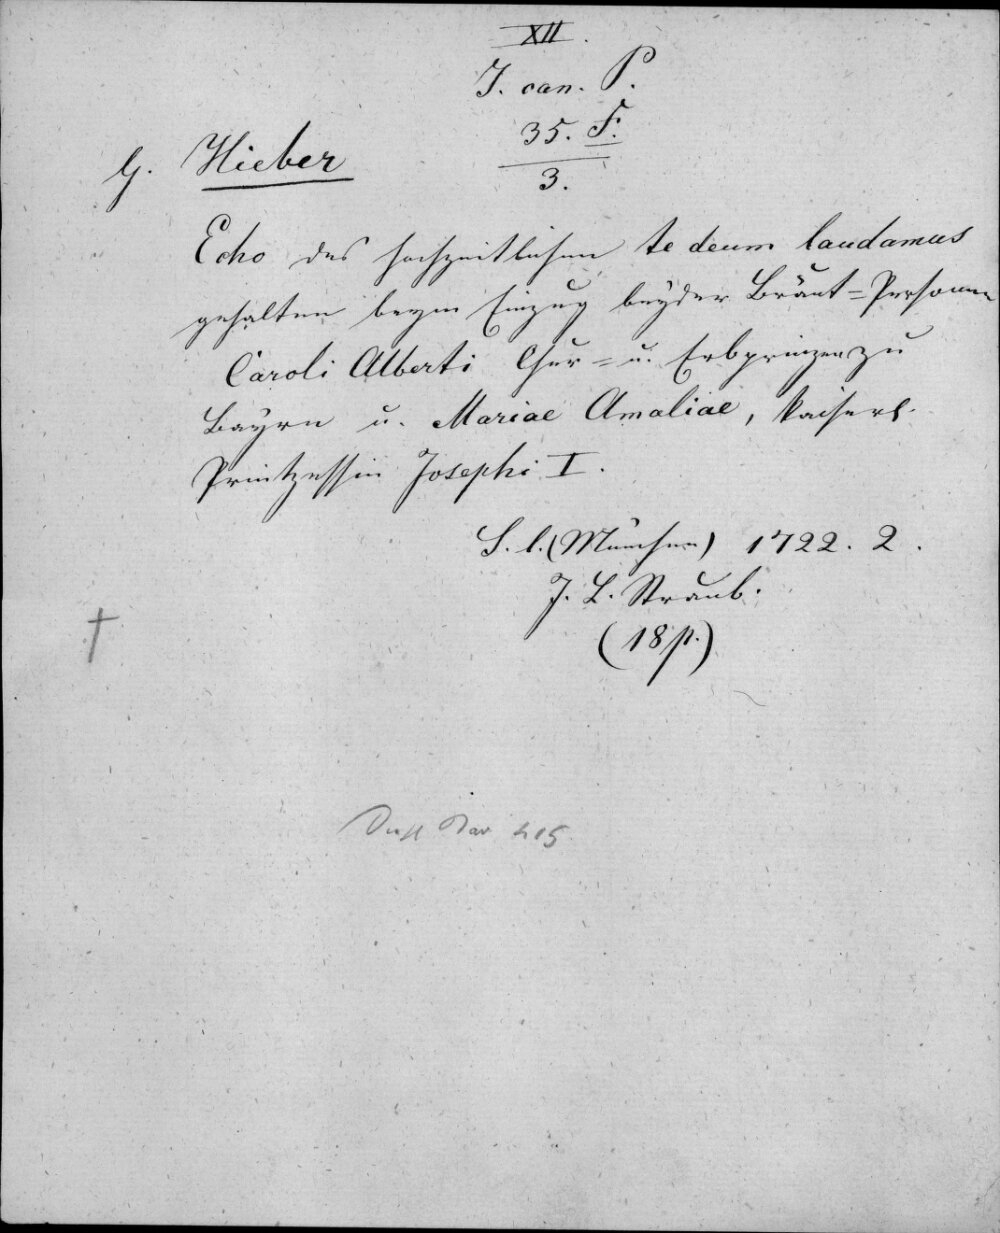 XII.
J. can. P.
35. F.
3.
G. Hieber
Echo des hochzeitlichen te deum laudamus
gehalten beym Einzug beyder Bräut=Personen
Caroli Alberti Chur= u. Erbprinzen zu
Bayrn u. Mariae Amaliae, kaiserl.
Printzessin Josephi I.
S. l. (München) 1722. 2.
J. L. Straub.
(18 p.)
†